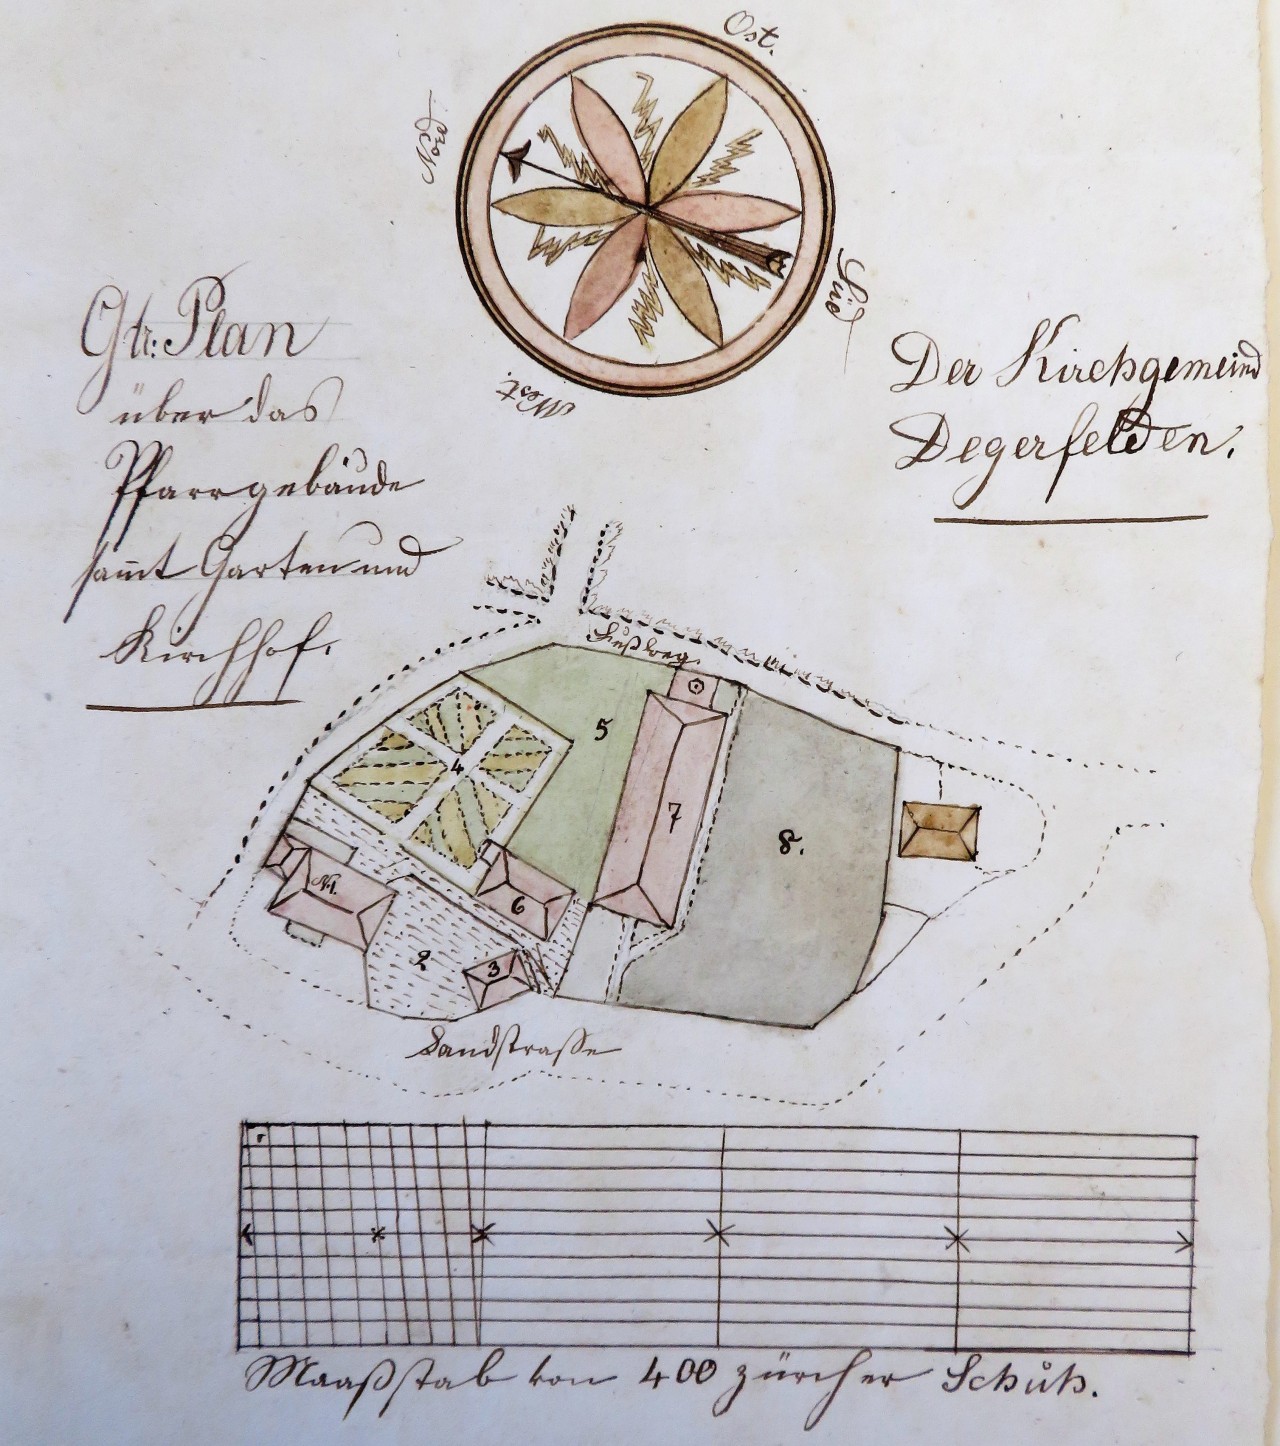 Ost.
Nord.
Süd
West.
Gtr: Plan
über das
Pfarrgebäude
sam̅t Garten und
Kirchhof.
Der Kirchgemeind
Degerfelden.
Fußweg.
5
4
7
8.
N1.
6
2
3
Landstrasse
Maaßstab von 400 zürcher Schuh.